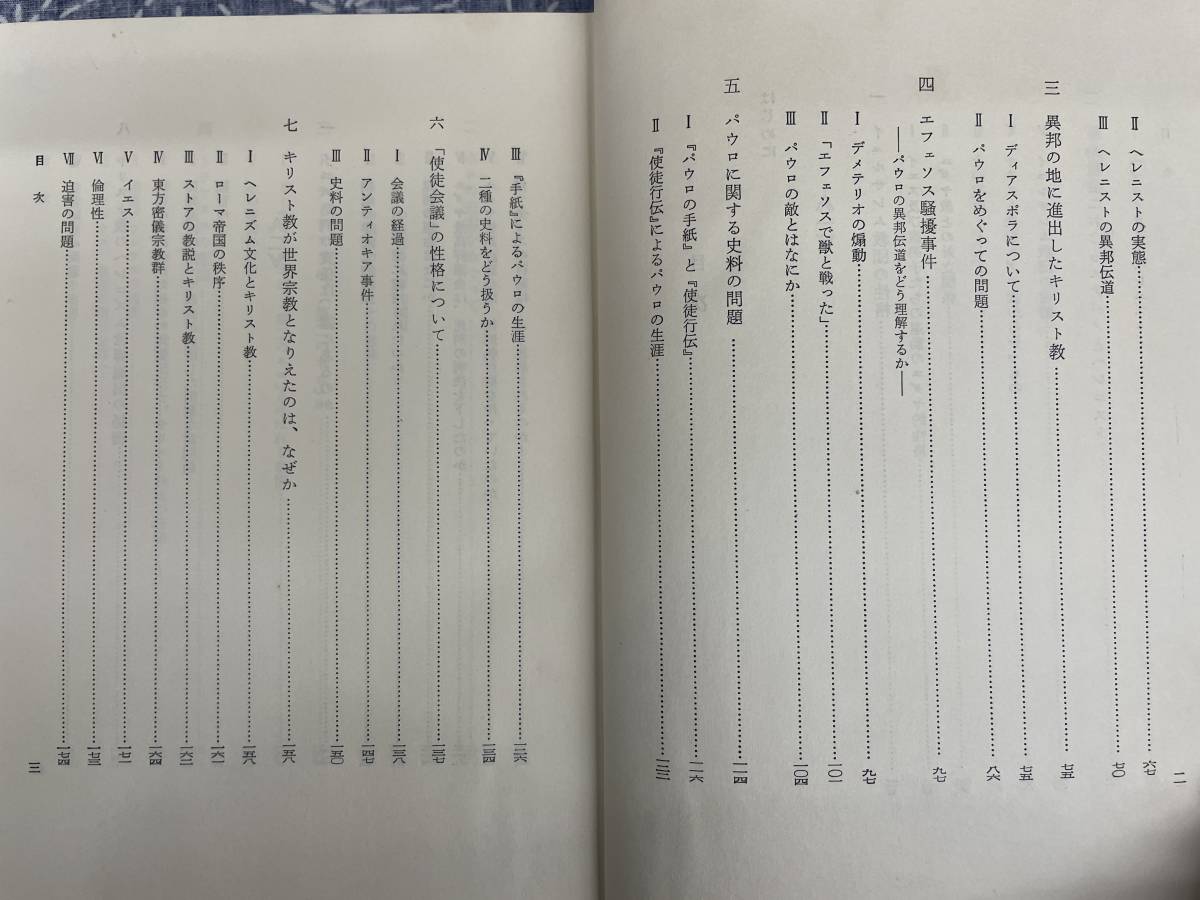 二
Ⅱ ヘレニストの実態……六七
Ⅲ ヘレニストの異邦伝道……七〇
三 異邦の地に進出したキリスト教……七五
Ⅰ ディアスポラについて……七五
Ⅱ パウロをめぐっての問題……八六
四 エフェソス騒擾事件……九七
――パウロの異邦伝道をどう理解するか――
Ⅰ デメテリオの煽動……九七
Ⅱ 「エフェソスで獣と戦った」……一〇一
Ⅲ パウロの敵とはなにか……一〇四
五 パウロに関する史料の問題……一一四
Ⅰ 『パウロの手紙』と『使徒行伝』……一一六
Ⅱ 『使徒行伝』によるパウロの生涯……
Ⅲ 『手紙』によるパウロの生涯……一二六
Ⅳ 二種の史料をどう扱うか……一三四
六 「使徒会議」の性格について……一三七
Ⅰ 会議の経過……一三八
Ⅱ アンティオキア事件……一四七
Ⅲ 史料の問題……一五〇
七 キリスト教が世界宗教となりえたのは、なぜか……一五八
Ⅰ ヘレニズム文化とキリスト教……一五八
Ⅱ ローマ帝国の秩序……一六一
Ⅲ ストアの教説とキリスト教……一六二
Ⅳ 東方密儀宗教群……一六四
Ⅴ イエス……一七一
Ⅵ 倫理性……一七三
Ⅶ 迫害の問題……一七四
目次
三